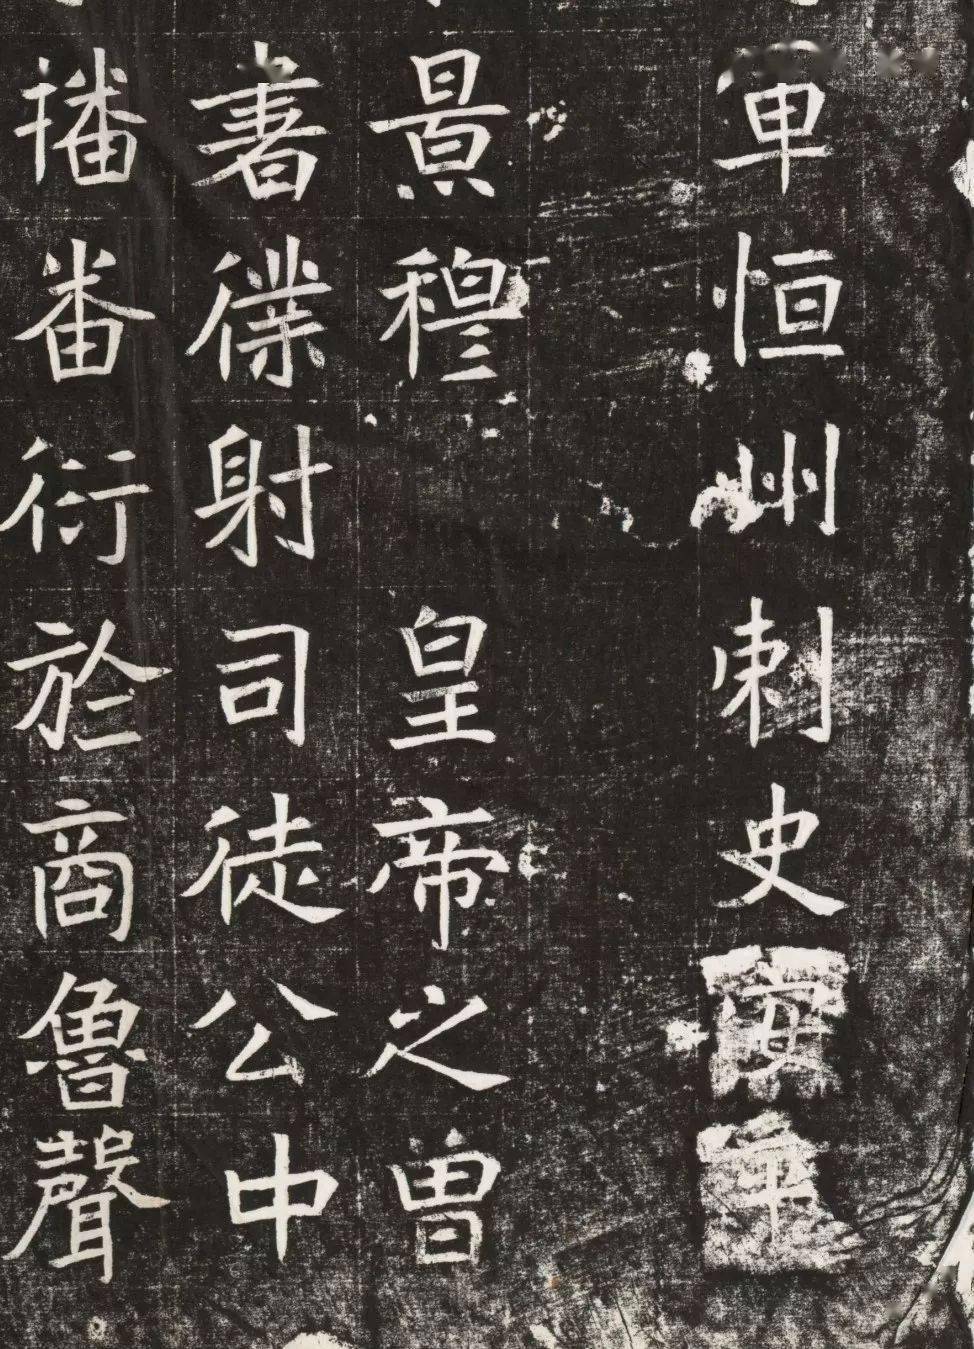 軍恒州刺史安
景穆 皇帝之曾
書僕射司徒公中
播番衍於商魯聲